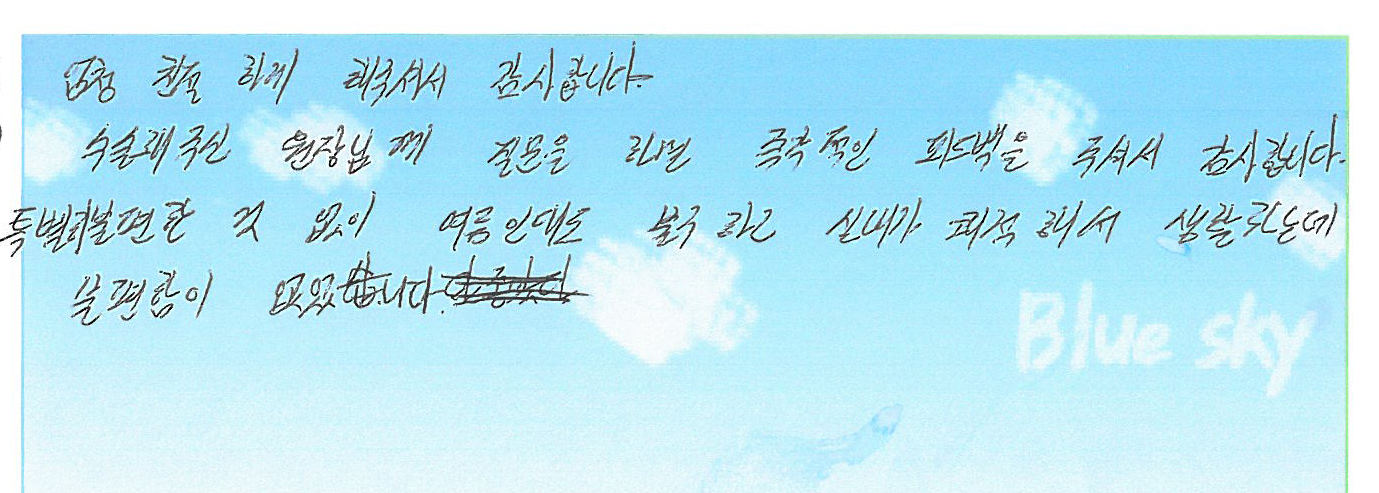 엄청 친절 하게 해주셔서 감사합니다.
수술해주신 원장님께 질문을 하면 즉각적인 피드백을 주셔서 감사합니다.
특별히불편한 것 없이 여름인데도 불구 하고 실내가 쾌적해서 생활하는데
불편함이 없었습니다.
Blue sky